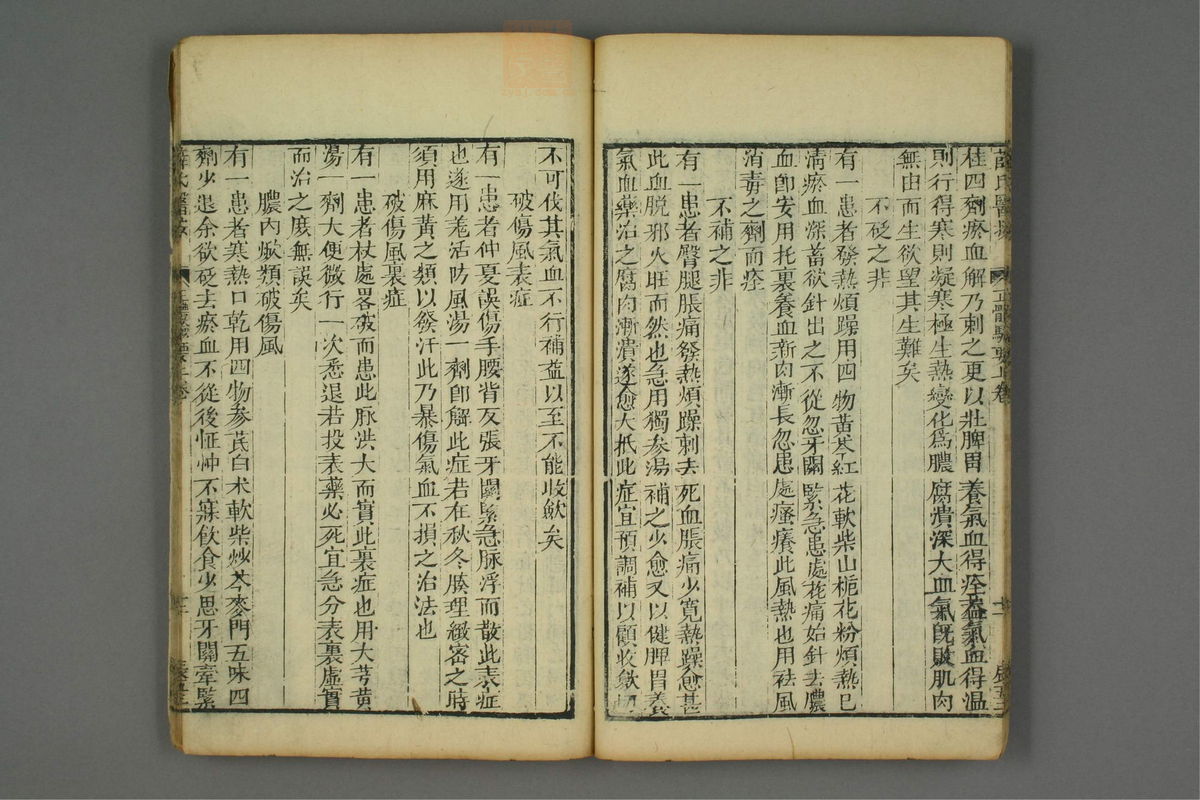 桂四劑瘀血解乃刺之更以壯脾胃養氣血得痊蓋氣血得温
則行得寒則凝寒極生熱變化爲膿腐潰深大血氣旣敗肌肉
無由而生欲望其生難矣
不砭之非
有一患者發熱煩躁用四物黃芩紅花軟柴山梔花粉煩熱已
清瘀血深蓄欲針出之不從忽牙關緊急患處作痛始針去膿
血卽安用托裏養血新肉漸長忽患處瘙癢此風熱也用祛風
消毒之劑而痊
不補之非
有一患者臀腿脹痛發熱煩躁刺去死血脹痛少寛熱躁愈甚
此血脫邪火旺而然也急用獨參湯補之少愈又以健脾胃養
氣血藥治之腐肉漸潰遂愈大抵此症宜預調補以顧收斂切
不可伐其氣血不行補益以至不能收斂矣
破傷風表症
有一患者仲夏誤傷手腰背反張牙關緊急脉浮而散此表症
也遂用羗活防風湯一劑卽解此症若在秋冬腠理緻密之時
須用麻黃之類以發汗此乃暴傷氣血不損之治法也
破傷風裏症
有一患者杖處畧破而患此脉洪大而實此裏症也用大芎黃
湯一劑大便微行一次悉退若投表藥必死宜急分表裏虛實
而治之庶無誤矣
膿內焮類破傷風
有一患者寒熱口乾用四物參芪白术軟柴炒芩麥門五味四
劑少退余欲砭去瘀血不從後怔忡不寐飲食少思牙關牽緊
薛氏醫按
正體類要上卷